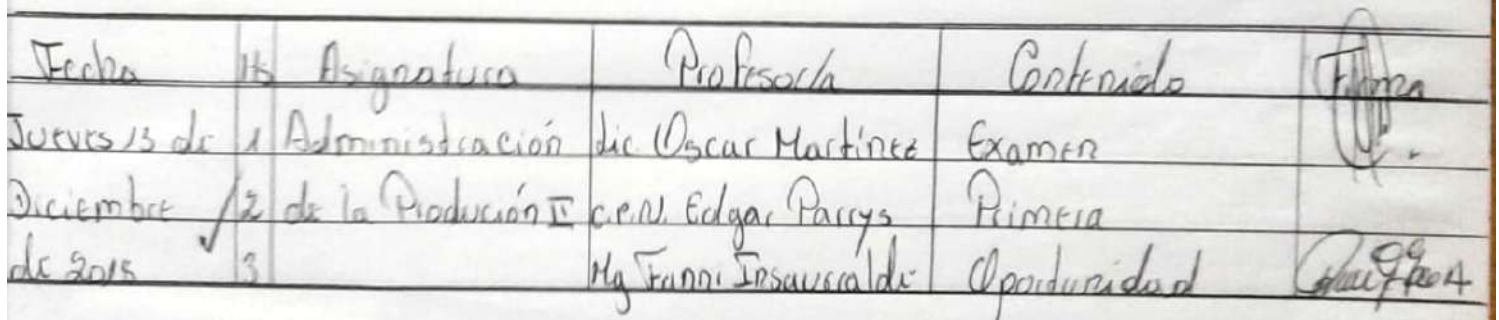 Fecha Hs Asignatura Profesor/a Contenido Firma
Jueves 13 de 1 Administración Lic. Oscar Martínez Examen
Diciembre 2 de la Produción II C.P.N. Edgar Parrys Primera
de 2018 3 Mg Fanni Insaurralde Oportunidad